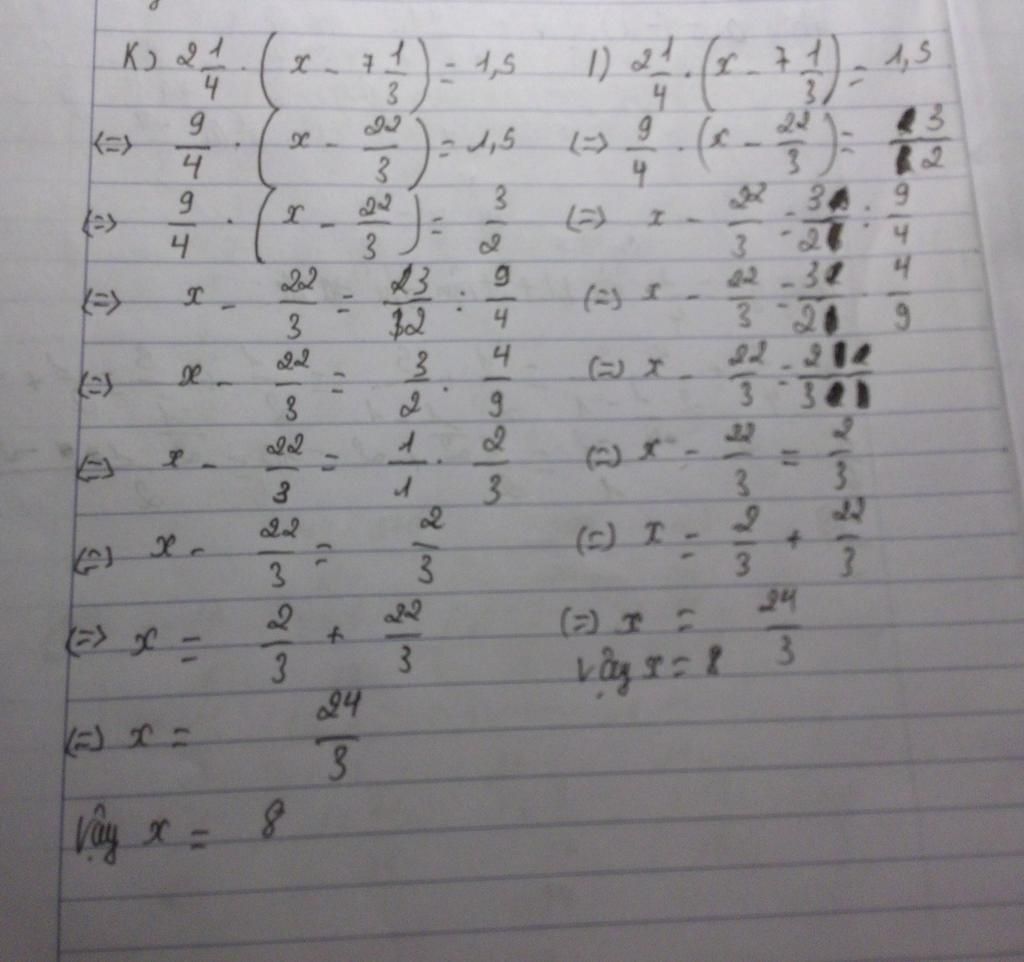 K) 2 1/4 . (x - 7 1/3) = 1,5
(=) 9/4 . (x - 22/3) = 1,5
(=) 9/4 . (x - 22/3) = 3/2
(=) x - 22/3 = 3/2 : 9/4
(=) x - 22/3 = 3/2 . 4/9
(=) x - 22/3 = 1/1 . 2/3
(=) x - 22/3 = 2/3
(=) x = 2/3 + 22/3
(=) x = 24/3
Vậy x = 8
l) 2 1/4 . (x - 7 1/3) = 1,5
(=) 9/4 . (x - 22/3) = 3/2
(=) x - 22/3 = 3/2 : 9/4
(=) x - 22/3 = 3/2 . 4/9
(=) x - 22/3 = 2/3
(=) x - 22/3 = 2/3
(=) x = 2/3 + 22/3
(=) x = 24/3
Vậy x = 8